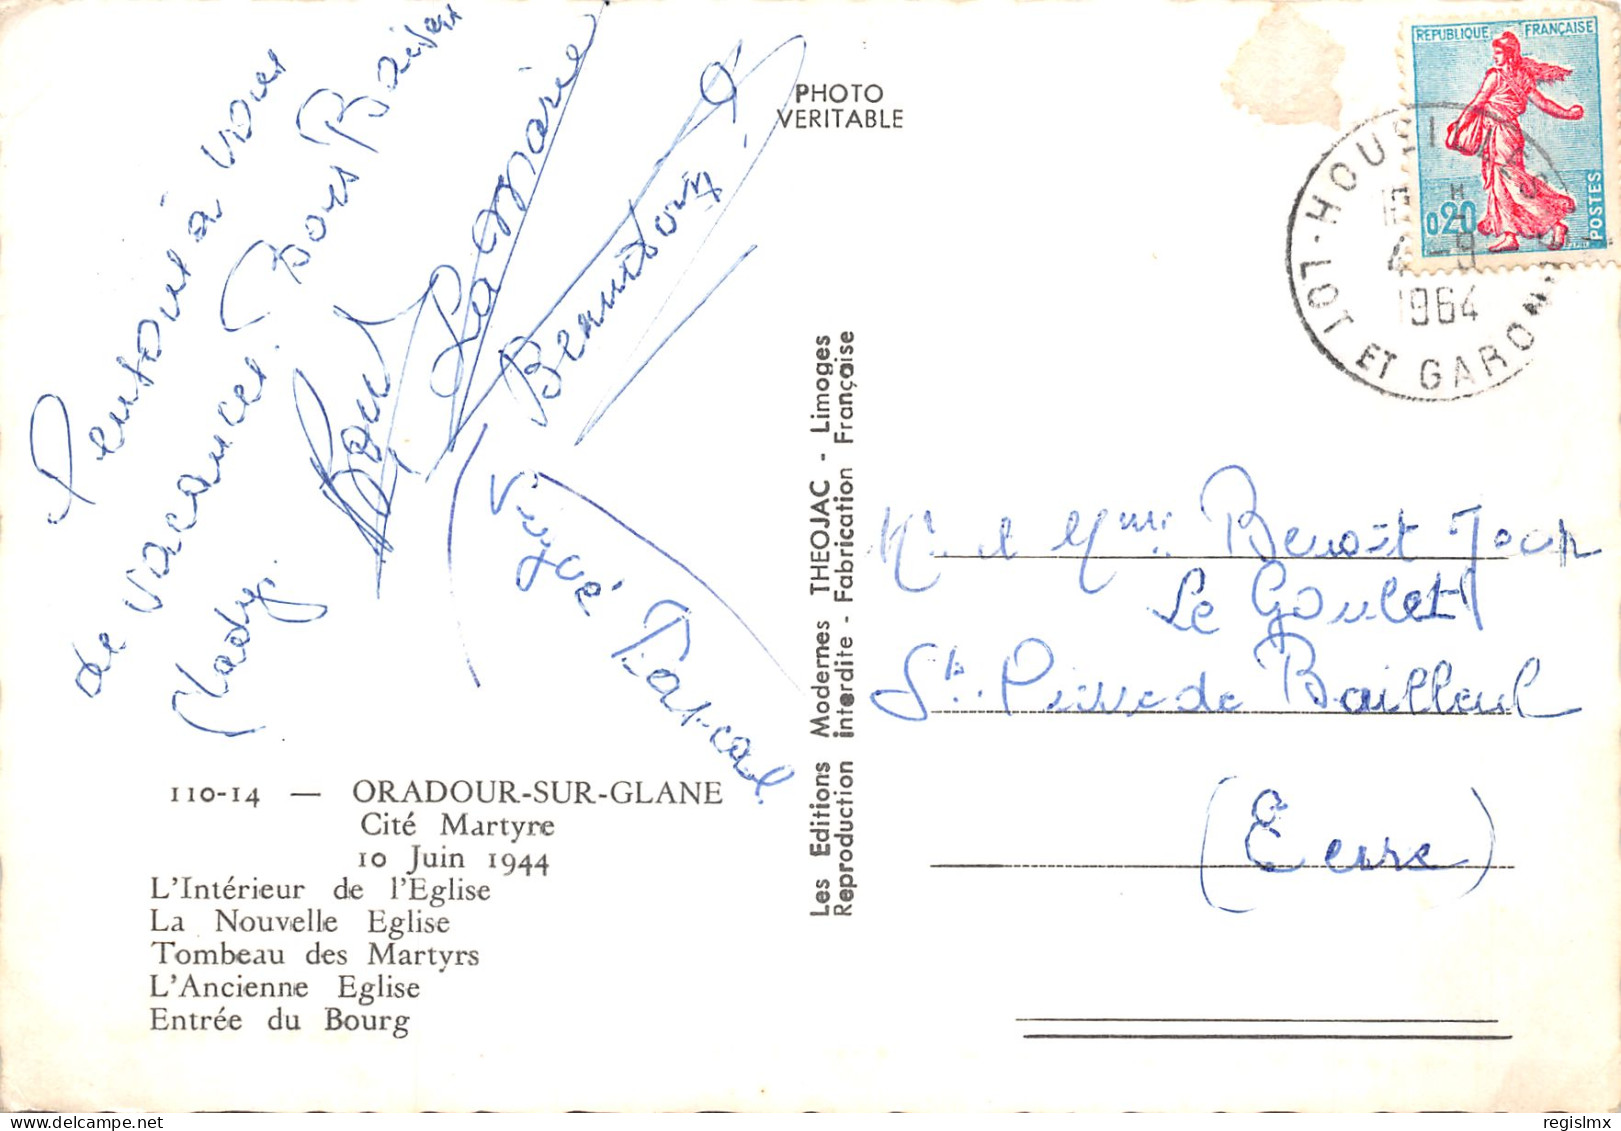 Pensons à vous
de vacances. Bons Baisers
Nady.
LeMarie
Bernadou
Vigué Pascal
110-14 — ORADOUR-SUR-GLANE
Cité Martyre
10 Juin 1944
L'Intérieur de l'Eglise
La Nouvelle Eglise
Tombeau des Martyrs
L'Ancienne Eglise
Entrée du Bourg
PHOTO
VERITABLE
Les Editions Modernes THEOJAC - Limoges
Reproduction interdite - Fabrication Française
REPUBLIQUE FRANÇAISE
0,20
POSTES
HOURTILLES
4 - 9
1964
LOT ET GARONNE
Mr et Mme Benoît Jean
Le Goulet
St. Pierre de Bailleul
(Eure)
regislmx